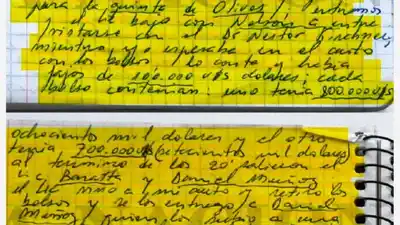 para la quinta de Olivos / entramos
Lic bajo con Nelson a entre
vistarse con el Dr Nestor Kirchner,
mientras yo esperaba en el auto
con los bolsos / lo conte y habia
fajos de 100.000 u$s dolares; cada
bolso contenian: uno tenia 800.000 u$s
ochocientos mil dolares y el otro
tenia 700.000 u$s (setecientos mil dolares)
al termino de los 20' salieron el
Lic Baratta y Daniel Muñoz
el Lic vino a mi auto y retiro los
bolsos y se los entrego a Daniel
Muñoz / quien los subio a una